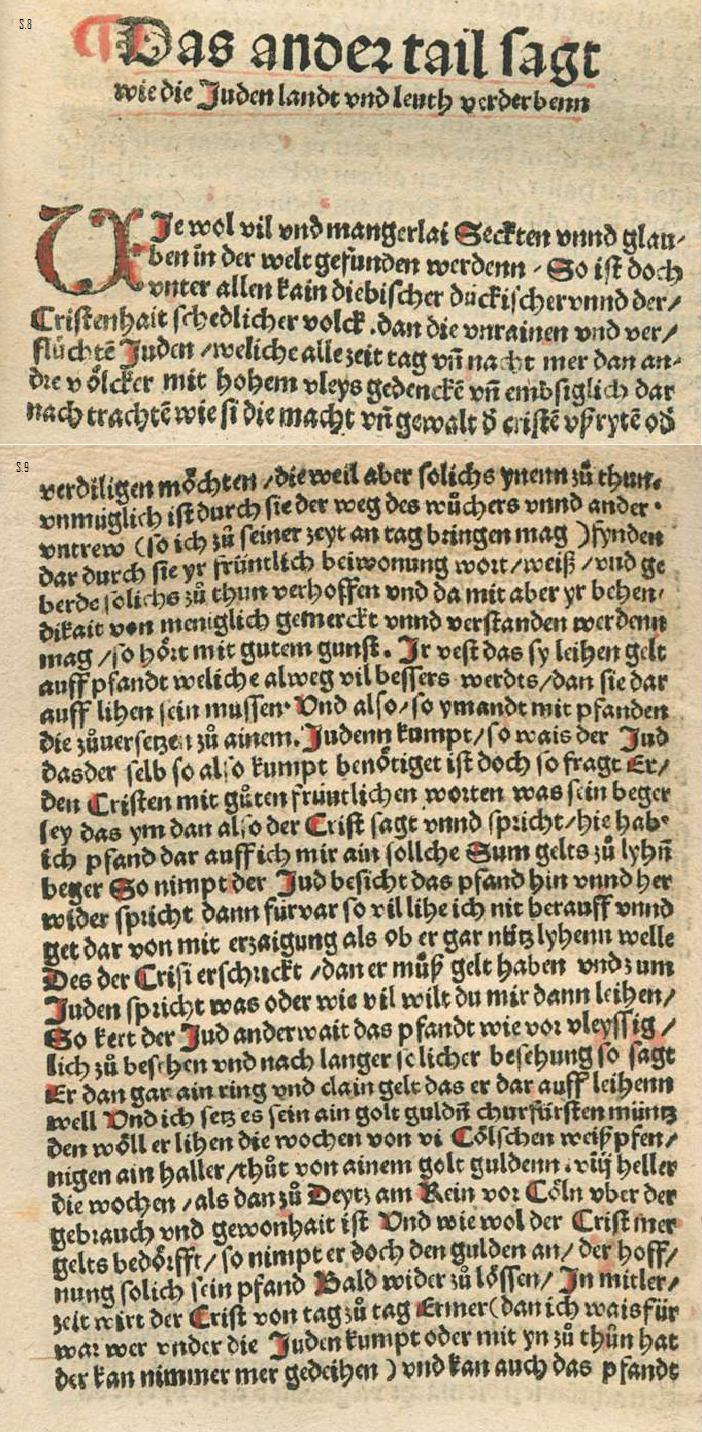 S.8
Das ander tail sagt
wie die Juden landt vnd leuth verderbenn
WJe wol vil vnd mangerlai Seckten vnnd glau-
ben in der welt gefunden werdenn / So ist doch
vnter allen kain diebischer dückischer vnnd der/
Cristenhait schedlicher volck . dan die vnrainen vnd ver/
flůchtē Juden / weliche alle zeit tag vn̄ nacht mer dan an-
dre võlcker mit hohem vleys gedenckē vn̄ embsiglich dar
nach trachtē wie si die macht vn̄ gewalt d̄ cristē vßrytē od̄
S.9
verdiligen mőchten / die weil aber solichs ynenn zů thun.
vnmüglich ist durch sie der weg des wůchers vnnd ander .
vntrew (so ich zů seiner zeyt an tag bringen mag ) fynden
dar durch sie yr früntlich beiwonung wort / weiß / vnd ge
berde solichs zů thun verhoffen vnd da mit aber yr behen/
dikait von meniglich gemerckt vnnd verstanden werdenn
mag / so hőrt mit gutem gunst . Jr vest das sy leihen gelt
auff pfandt weliche alweg vil bessers werdts / dan sie dar
auff lihen sein mussen . Vnd also / so ymandt mit pfanden
die zůuersetzen zů ainem . Judenn kumpt / so wais der Jud
das der selb so also kumpt benőtiget ist doch so fragt Er /
den Cristen mit gůten früntlichen worten was sein beger
sey das ym dan also der Crist sagt vnnd spricht / hie hab
ich pfand dar auff ich mir ain sollche Sum gelts zů lyhn̄
beger So nimpt der Jud besicht das pfand hin vnnd her
wider spricht dann fürvar so vil lihe ich nit herauff vnnd
get dar von mit erzaigung als ob er gar nütz lyhenn welle
Des der Crist erschrickt / dan er můß gelt haben vnd zum
Juden spricht was oder wie vil wilt du mir dann leihen /
So kert der Jud anderwait das pfandt wie vor vleyssig /
lich zů besehen vnd nach langer solicher besehung so sagt
Er dan gar ain ring vnd clain gelt das er dar auff leihenn
well Vnd ich setz es sein ain golt guldn̄ churfürsten müntz
den wőll er lihen die wochen von vi Cőlschen weißpfen /
nigen ain haller / thůt von ainem golt guldenn . viij heller
die wochen / als dan zů Deytz am Rein vor Cőln vber der
gebrauch vnd gewonhait ist Vnd wie wol der Crist mer
gelts bedőrfft / so nimpt er doch den gulden an / der hoff /
nung solich sein pfand Bald wider zů lőssen / In mitler /
zeit wirt der Crist von tag zů tag Ermer (dan ich wais für
war wer vnder die Juden kumpt oder mit yn zů thůn hat
der kan nimmer mer gedeihen ) vnd kan auch das pfandt